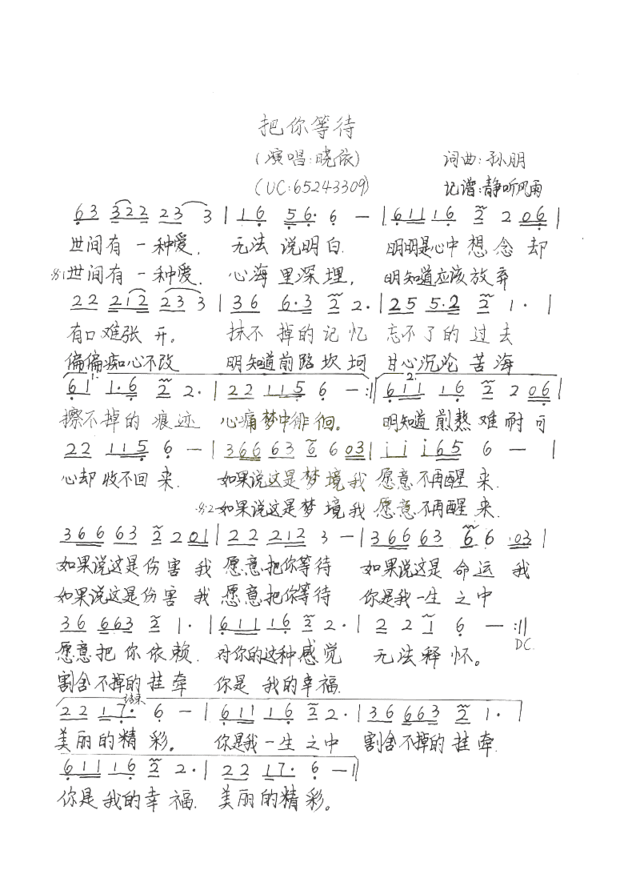 把你等待
(演唱:晓依) 词曲:孙朋
(UC:65243309) 记谱:静听风雨
63 322 23 3 | 16 56· 6 — | 6116 2 2 06 |
世间有一种爱, 无法说明白. 明明是心中想念却
𝄋1世间有一种爱, 心海里深埋, 明知道应该放弃
22 212 23 3 | 36 6·3 2 2· | 25 5·2 2 1· |
有口难张开。 抹不掉的记忆 忘不了的过去
偏偏痴心不改 明知道前路坎坷 甘心沉沦苦海
1.
61 1·6 2 2· | 22 115 6 — :|| 2. 611 16 2 2 06 |
擦不掉的痕迹 心痛梦中徘徊。 明知道煎熬难耐可
22 115 6 — | 36663 6 6 03 | i i i65 6 — |
心却收不回来. 如果说这是梦境我愿意不再醒来.
𝄋2如果说这是梦境我愿意不再醒来.
36663 2 201 | 22 212 3 — | 36663 6 6 03 |
如果说这是伤害我愿意把你等待 如果说这是命运我
如果说这是伤害我愿意把你等待 你是我一生之中
36 663 2 1· | 61116 2 2· | 2 2 1 6 — :||
D.C.
愿意把你依赖. 对你的这种感觉 无法释怀。
割舍不掉的挂牵 你是我的幸福.
结束
22 17· 6 — | 61116 2 2· | 36663 2 1· |
美丽的精彩。 你是我一生之中 割舍不掉的挂牵
61116 2 2· | 22 17· 6 — |
你是我的幸福. 美丽的精彩。